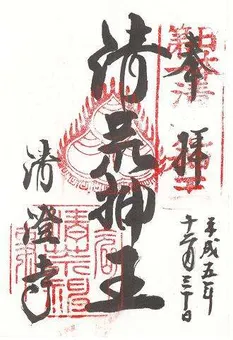 奉拝
清荒神王
清澄寺
平成五年
十二月三十日